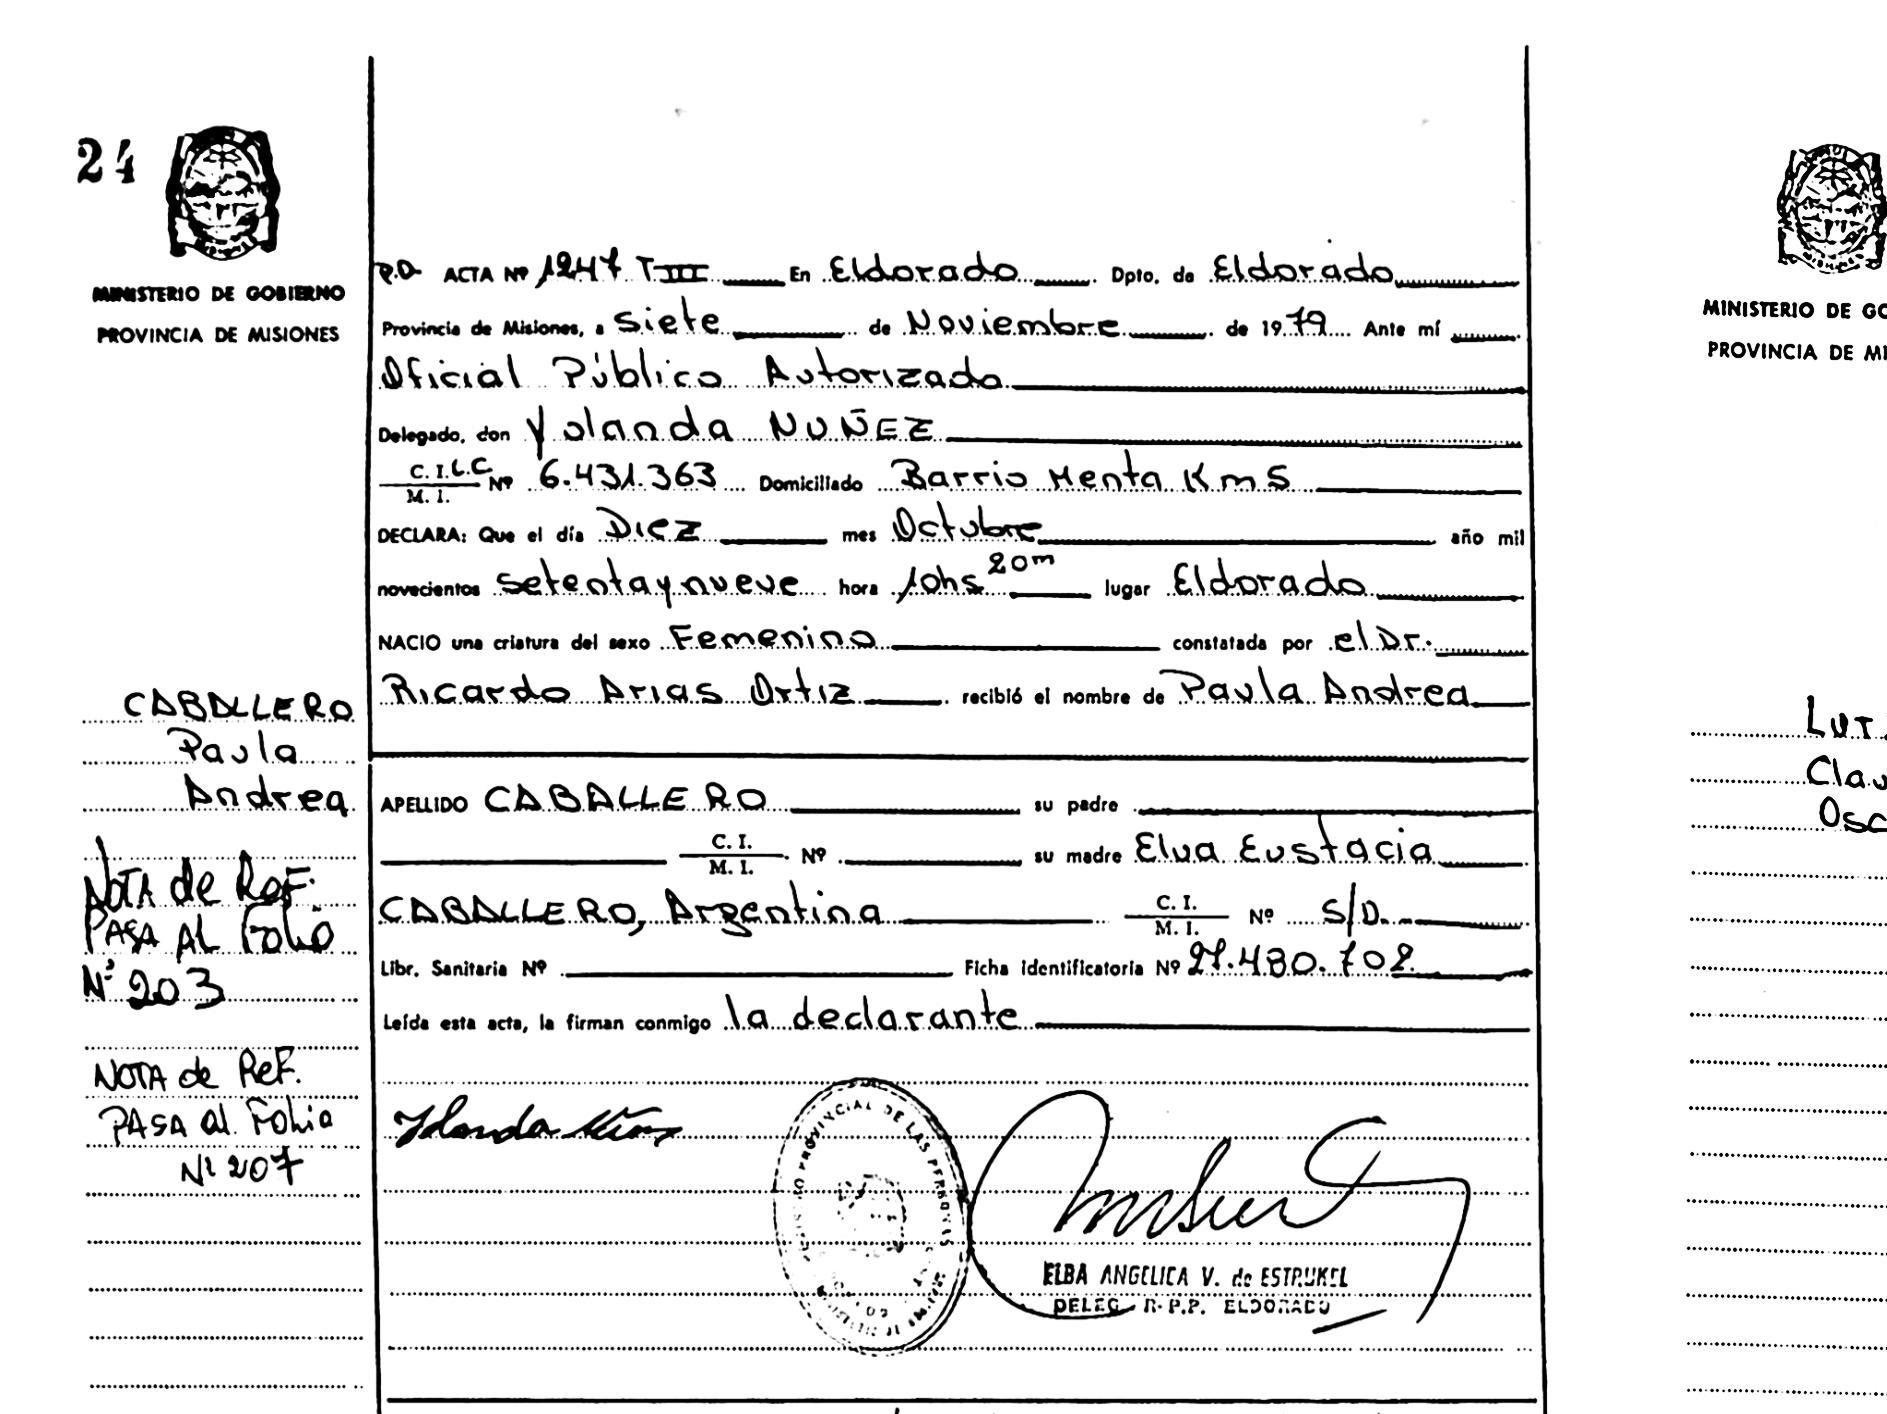 24
MINISTERIO DE GOBIERNO
PROVINCIA DE MISIONES
P.D. ACTA Nº 1247 T III En Eldorado Dpto. de Eldorado
Provincia de Misiones, a Siete de Noviembre de 1979 Ante mí
Oficial Público Autorizado
Delegado, don Yolanda NUÑEZ
C. I. L.C. Nº 6.431.363 Domiciliado Barrio Menta Km 5
M. I.
DECLARA: Que el día Diez mes Octubre año mil
novecientos setenta y nueve hora 10hs 20m lugar Eldorado
NACIO una criatura del sexo Femenino constatada por el Dr.
Ricardo Arias Ortiz recibió el nombre de Paula Andrea
APELLIDO CABALLERO su padre
C. I. Nº su madre Elva Eustacia
M. I.
CABALLERO, Argentina C. I. Nº S/D.
M. I.
Libr. Sanitaria Nº Ficha identificatoria Nº 27.480.702
Leída esta acta, la firman conmigo la declarante
CABALLERO
Paula
Andrea
NOTA de Ref.
PASA AL Folio
Nº 203
NOTA de Ref.
PASA al Folio
Nº 207
PROVINCIAL DE LAS PERSONAS
ELBA ANGELICA V. de ESTRUKEL
DELEG. R.P.P. ELDORADO
MINISTERIO DE GO
PROVINCIA DE MI
LUT
Clau
Osc